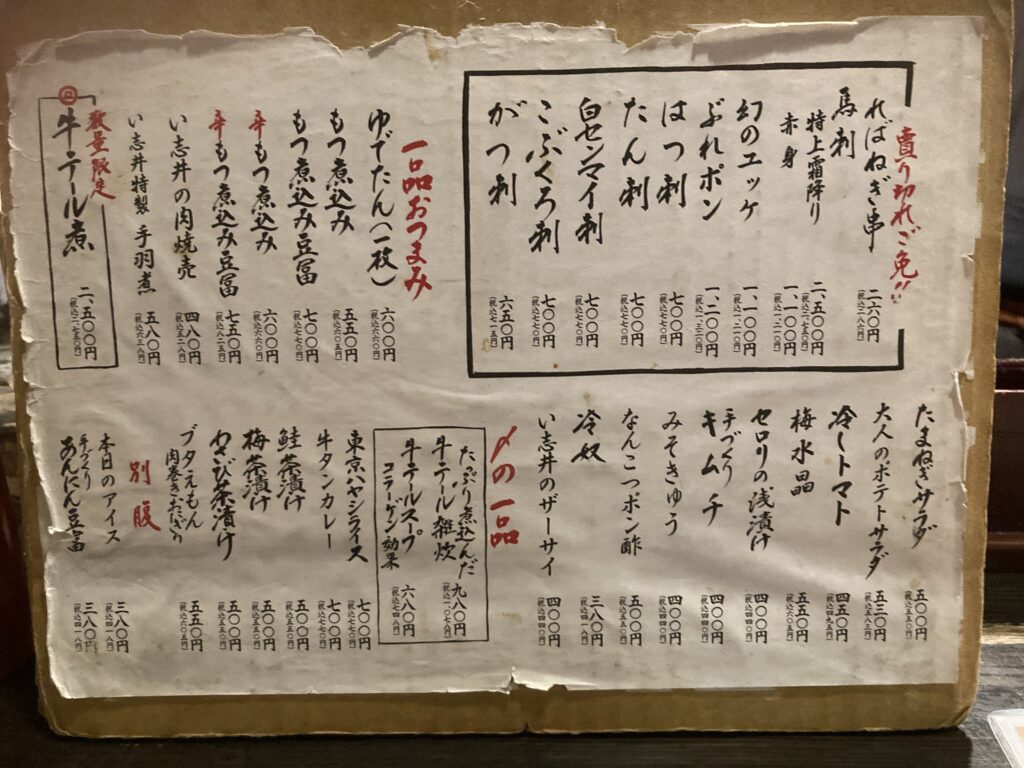 売り切れご免!!
ればねぎ串 二六〇円 (税込二八六円)
馬刺
特上霜降り 二、五〇〇円 (税込二、七五〇円)
赤身 一、一〇〇円 (税込一、二一〇円)
幻のエッグ 一、一〇〇円 (税込一、二一〇円)
ぶれポン 一、二〇〇円 (税込一、三二〇円)
はつ刺 七〇〇円 (税込七七〇円)
たん刺 七〇〇円 (税込七七〇円)
白センマイ刺 七〇〇円 (税込七七〇円)
こぶくろ刺 七〇〇円 (税込七七〇円)
がつ刺 六五〇円 (税込七一五円)
一品おつまみ
ゆでたん(一枚) 六〇〇円 (税込六六〇円)
もつ煮込み 五五〇円 (税込六〇五円)
もつ煮込み豆冨 七〇〇円 (税込七七〇円)
辛もつ煮込み 六〇〇円 (税込六六〇円)
辛もつ煮込み豆冨 七五〇円 (税込八二五円)
い志井の肉焼売 四八〇円 (税込五二八円)
い志井特製 手羽煮 五八〇円 (税込六三八円)
数量限定
牛テール煮 二、五〇〇円 (税込二、七五〇円)
たまねぎサラダ 五〇〇円 (税込五五〇円)
大人のポテトサラダ 五三〇円 (税込五八三円)
冷しトマト 四五〇円 (税込四九五円)
梅水晶 五五〇円 (税込六〇五円)
セロリの浅漬け 四〇〇円 (税込四四〇円)
手づくりキムチ 四〇〇円 (税込四四〇円)
みそきゅう 四〇〇円 (税込四四〇円)
なんこつポン酢 五〇〇円 (税込五五〇円)
冷奴 三八〇円 (税込四一八円)
い志井のザーサイ 四〇〇円 (税込四四〇円)
〆の一品
たっぷり煮込んだ
牛テール雑炊 九八〇円 (税込一、〇七八円)
牛テールスープ 六八〇円 (税込七四八円)
コラーゲン効果
東京ハヤシライス 七〇〇円 (税込七七〇円)
牛タンカレー 七〇〇円 (税込七七〇円)
鮭茶漬け 五〇〇円 (税込五五〇円)
梅茶漬け 五〇〇円 (税込五五〇円)
わさび茶漬け 五〇〇円 (税込五五〇円)
ブタえもん
肉巻きおにぎり 五五〇円 (税込六〇五円)
別腹
本日のアイス 三八〇円 (税込四一八円)
手づくり
あんにん豆冨 三八〇円 (税込四一八円)